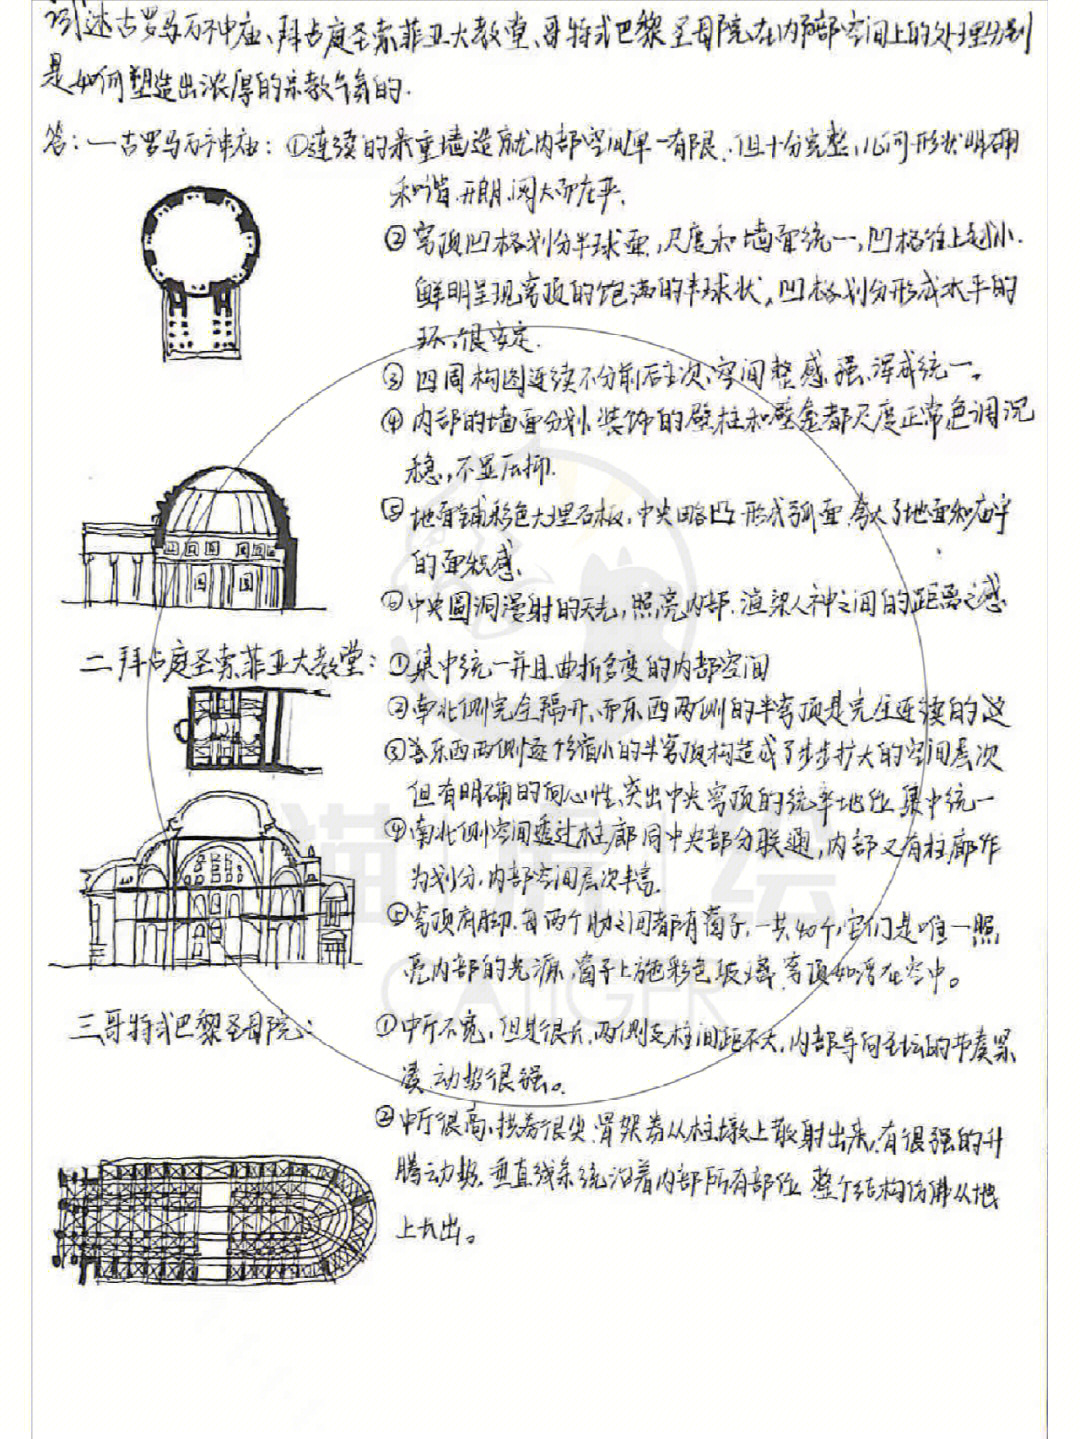 试述古罗马万神庙、拜占庭圣索菲亚大教堂、哥特式巴黎圣母院、在内部空间上的处理分别
是如何塑造出浓厚的宗教气氛的.
答:一古罗马万神庙: ①连续的承重墙造就内部空间单一有限.但十分完整,几何形状明确
和谐.开朗.阔大而庄严.
②穹顶凹格划分半球面,尺度和墙面统一,凹格往上越小.
鲜明呈现穹顶的饱满的半球状,凹格划分形成水平的
环,很安定.
③四周构图连续不分前后主次,空间整感强,浑成统一。
④内部的墙面分划.装饰的壁柱和壁龛都尺度正常色调沉
稳,不显压抑.
⑤地面铺彩色大理石板,中央略凸形成弧面,夸大了地面和庙宇
的面积感.
⑥中央圆洞漫射的天光,照亮内部,渲染人神之间的距离之感
二拜占庭圣索菲亚大教堂: ①集中统一并且曲折多变的内部空间
②南北侧完全隔开、而东西两侧的半穹顶是完全连续的这
③东西两侧逐个缩小的半穹顶构造成了步步扩大的空间层次
但有明确的向心性,突出中央穹顶的统率地位 集中统一
④南北侧空间透过柱廊同中央部分联通,内部又有柱廊作
为划分,内部空间层次丰富.
⑤穹顶肩脚.每两个肋之间都有窗子,一共40个,它们是唯一照
亮内部的光源,窗子上施彩色玻璃,穹顶如浮在空中。
三哥特式巴黎圣母院: ①中厅不宽,但是很长,两侧支柱间距不大,内部导向圣坛的节奏紧
凑.动势很强。
②中厅很高,拱券很尖.骨架券从柱墩上散射出来,有很强的升
腾动势.垂直线条统治着内部所有部位 整个结构仿佛从地
上长出。
猫虎绘
CATIGER